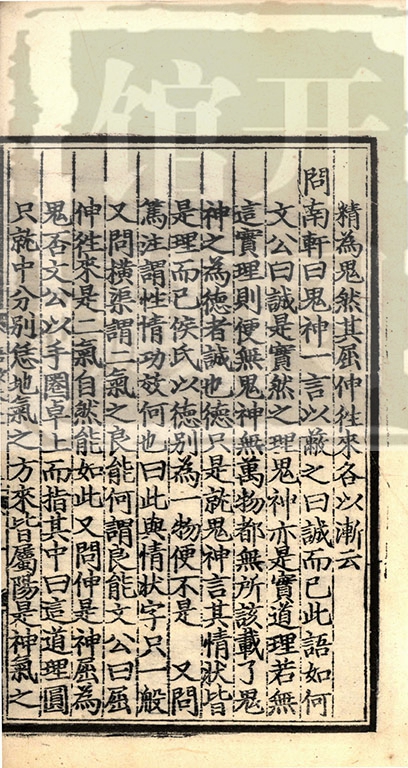 精為鬼然其屈伸徃來各以漸云
問南軒曰鬼神一言以蔽之曰誠而已此語如何
文公曰誠是實然之理鬼神亦是實道理若無
這實理則便無鬼神無萬物都無所該載了鬼
神之為德者誠也德只是就鬼神言其情狀皆
是理而已侯氏以德別為一物便不是 又問
篤注謂性情功效何也曰此與情狀字只一般
又問橫渠謂二氣之良能何謂良能文公曰屈
伸徃來是二氣自然能如此又問伸是神屈為
鬼否文公以手圈卓上而指其中曰這道理圓
只就中分別恁地氣之方來皆屬陽是神氣之
館開